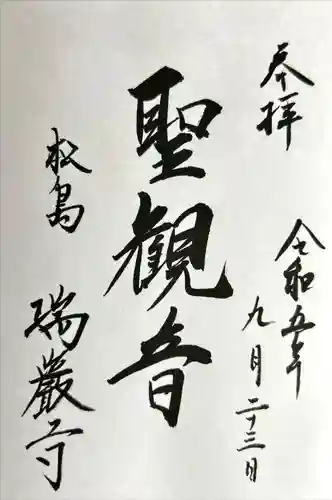 奉拝
令和五年
九月二十三日
聖観音
松島
瑞巌寺